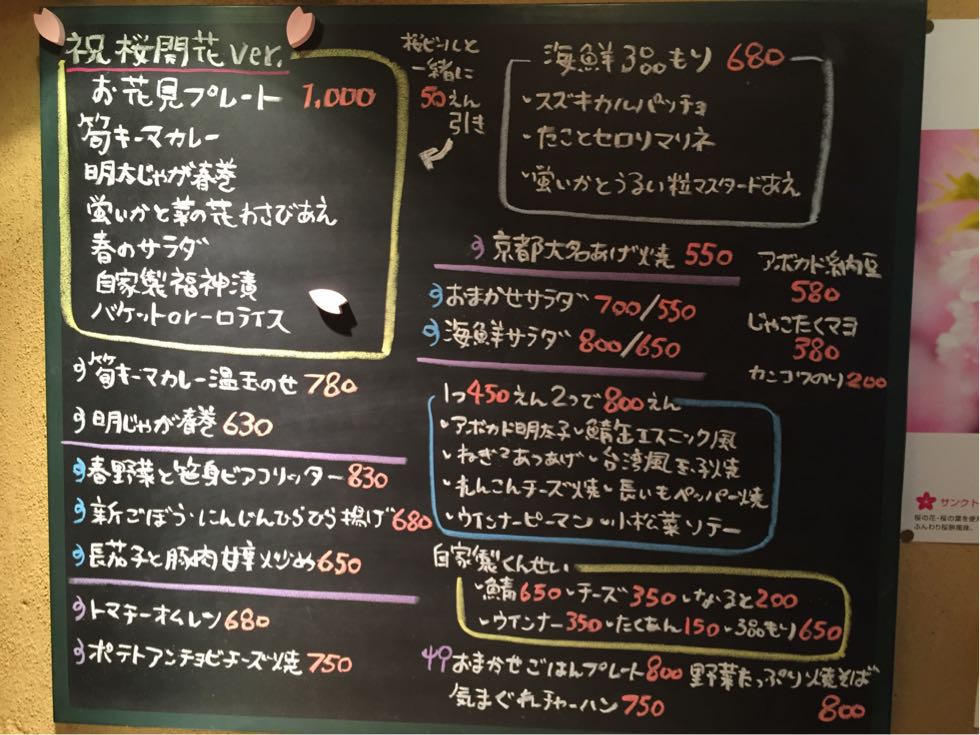 祝桜開花ver.
お花見プレート 1,000
筍キーマカレー
明太じゃが春巻
蛍いかと菜の花わさびあえ
春のサラダ
自家製福神漬
バケットor一口ライス
桜ビールと
一緒に
50えん
引き
海鮮3品もり 680
・スズキカルパッチョ
・たことセロリマリネ
・蛍いかとうるい粒マスタードあえ
京都大名あげ焼 550
おまかせサラダ 700/550
海鮮サラダ 800/650
アボカド納豆
580
じゃこたくマヨ
380
カンコクのり200
筍キーマカレー温玉のせ 780
明じゃが春巻 630
春野菜と笹身ビアフリッター 830
新ごぼう・にんじんひらひら揚げ 680
長茄子と豚肉甘辛炒め 650
トマチーオムレツ 680
ポテトアンチョビチーズ焼 750
1つ450えん2つで800えん
・アボカド明太子・鯖缶エスニック風
・ねぎみそあつあげ・台湾風玉子焼
・れんこんチーズ焼・長いもペッパー焼
・ウインナーピーマン・小松菜ソテー
自家製くんせい
・鯖650・チーズ350・なると200
・ウインナー350・たくあん150・3品もり650
おまかせごはんプレート800
気まぐれチャーハン 750
野菜たっぷり焼そば
800
サンクト
桜の花・桜の葉を使
ふんわり桜餅風味。